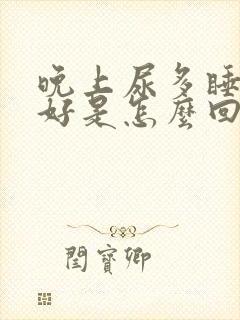 晚上尿多睡
好是怎麼回
閆寶卿